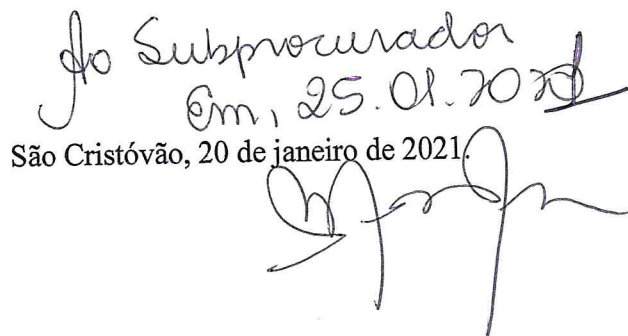 Ao Subprocurador
Em, 25.01.2021
São Cristóvão, 20 de janeiro de 2021.